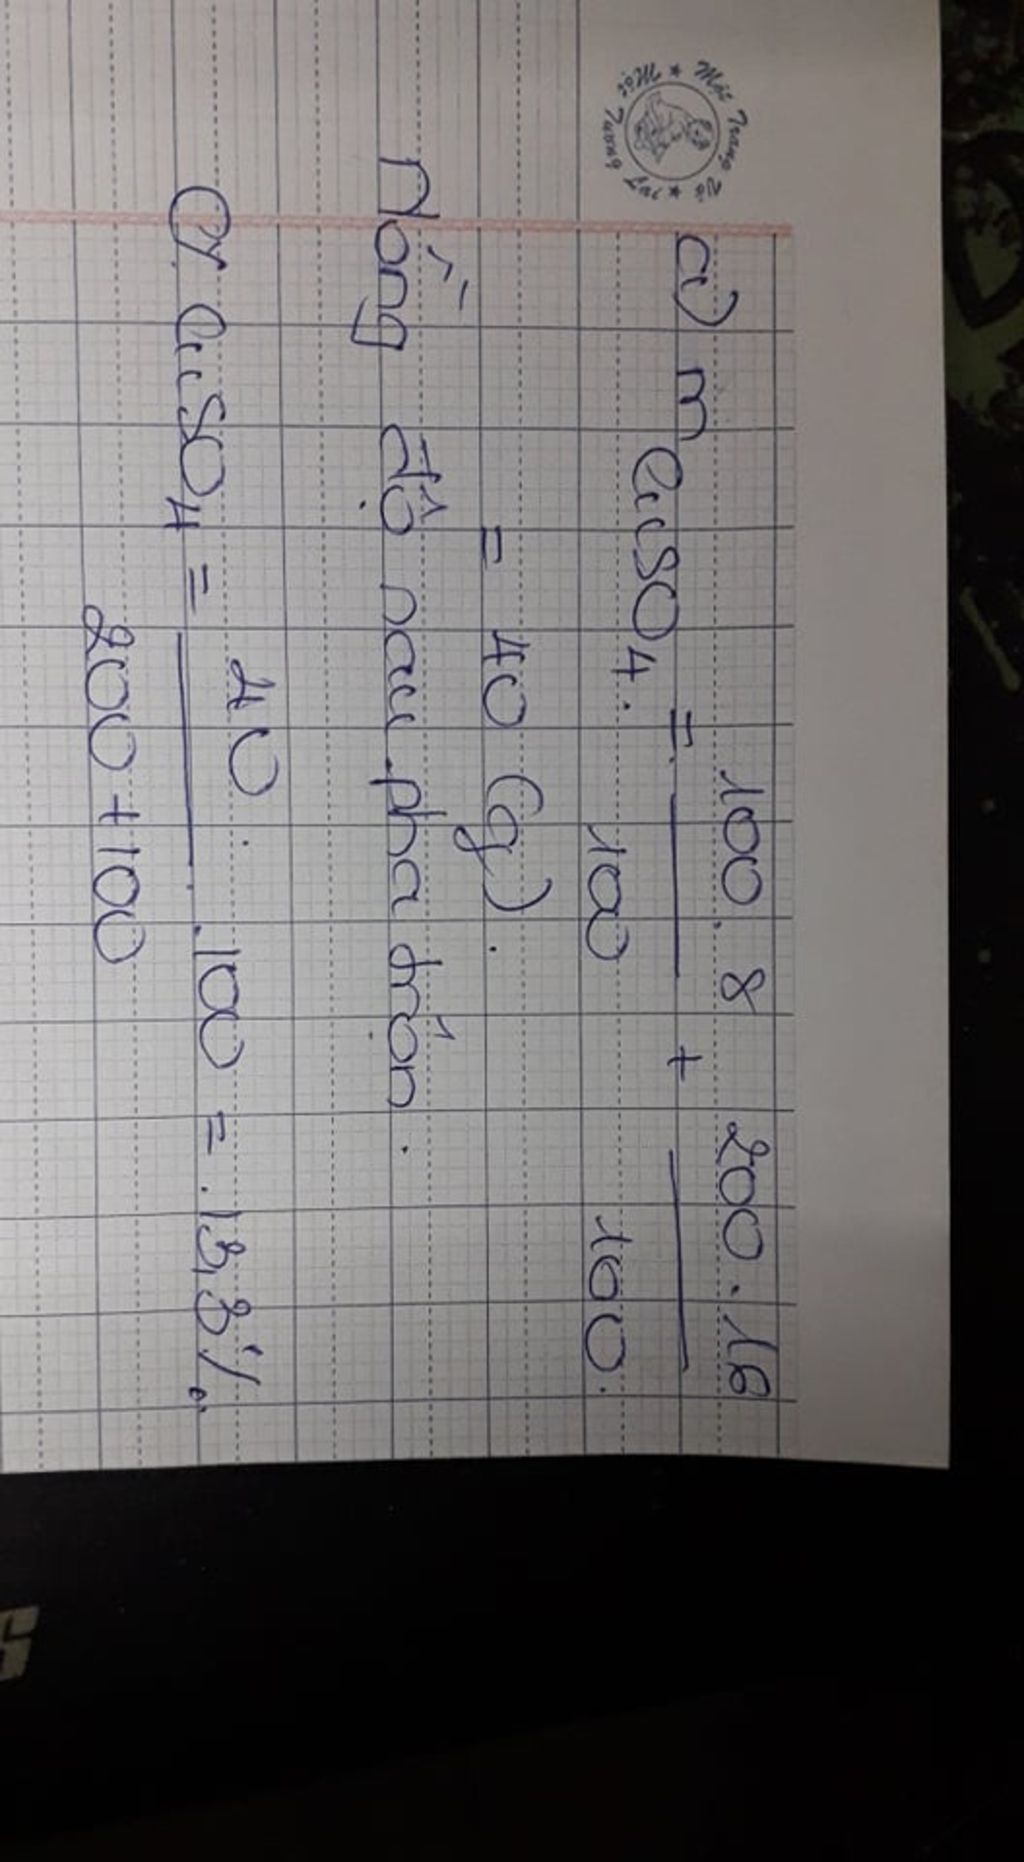 a) m CuSO4 = 100.8/100 + 200.16/100
= 40 (g).
Nồng độ sau pha trộn.
C% CuSO4 = 40/200+100 .100 = 13,3%